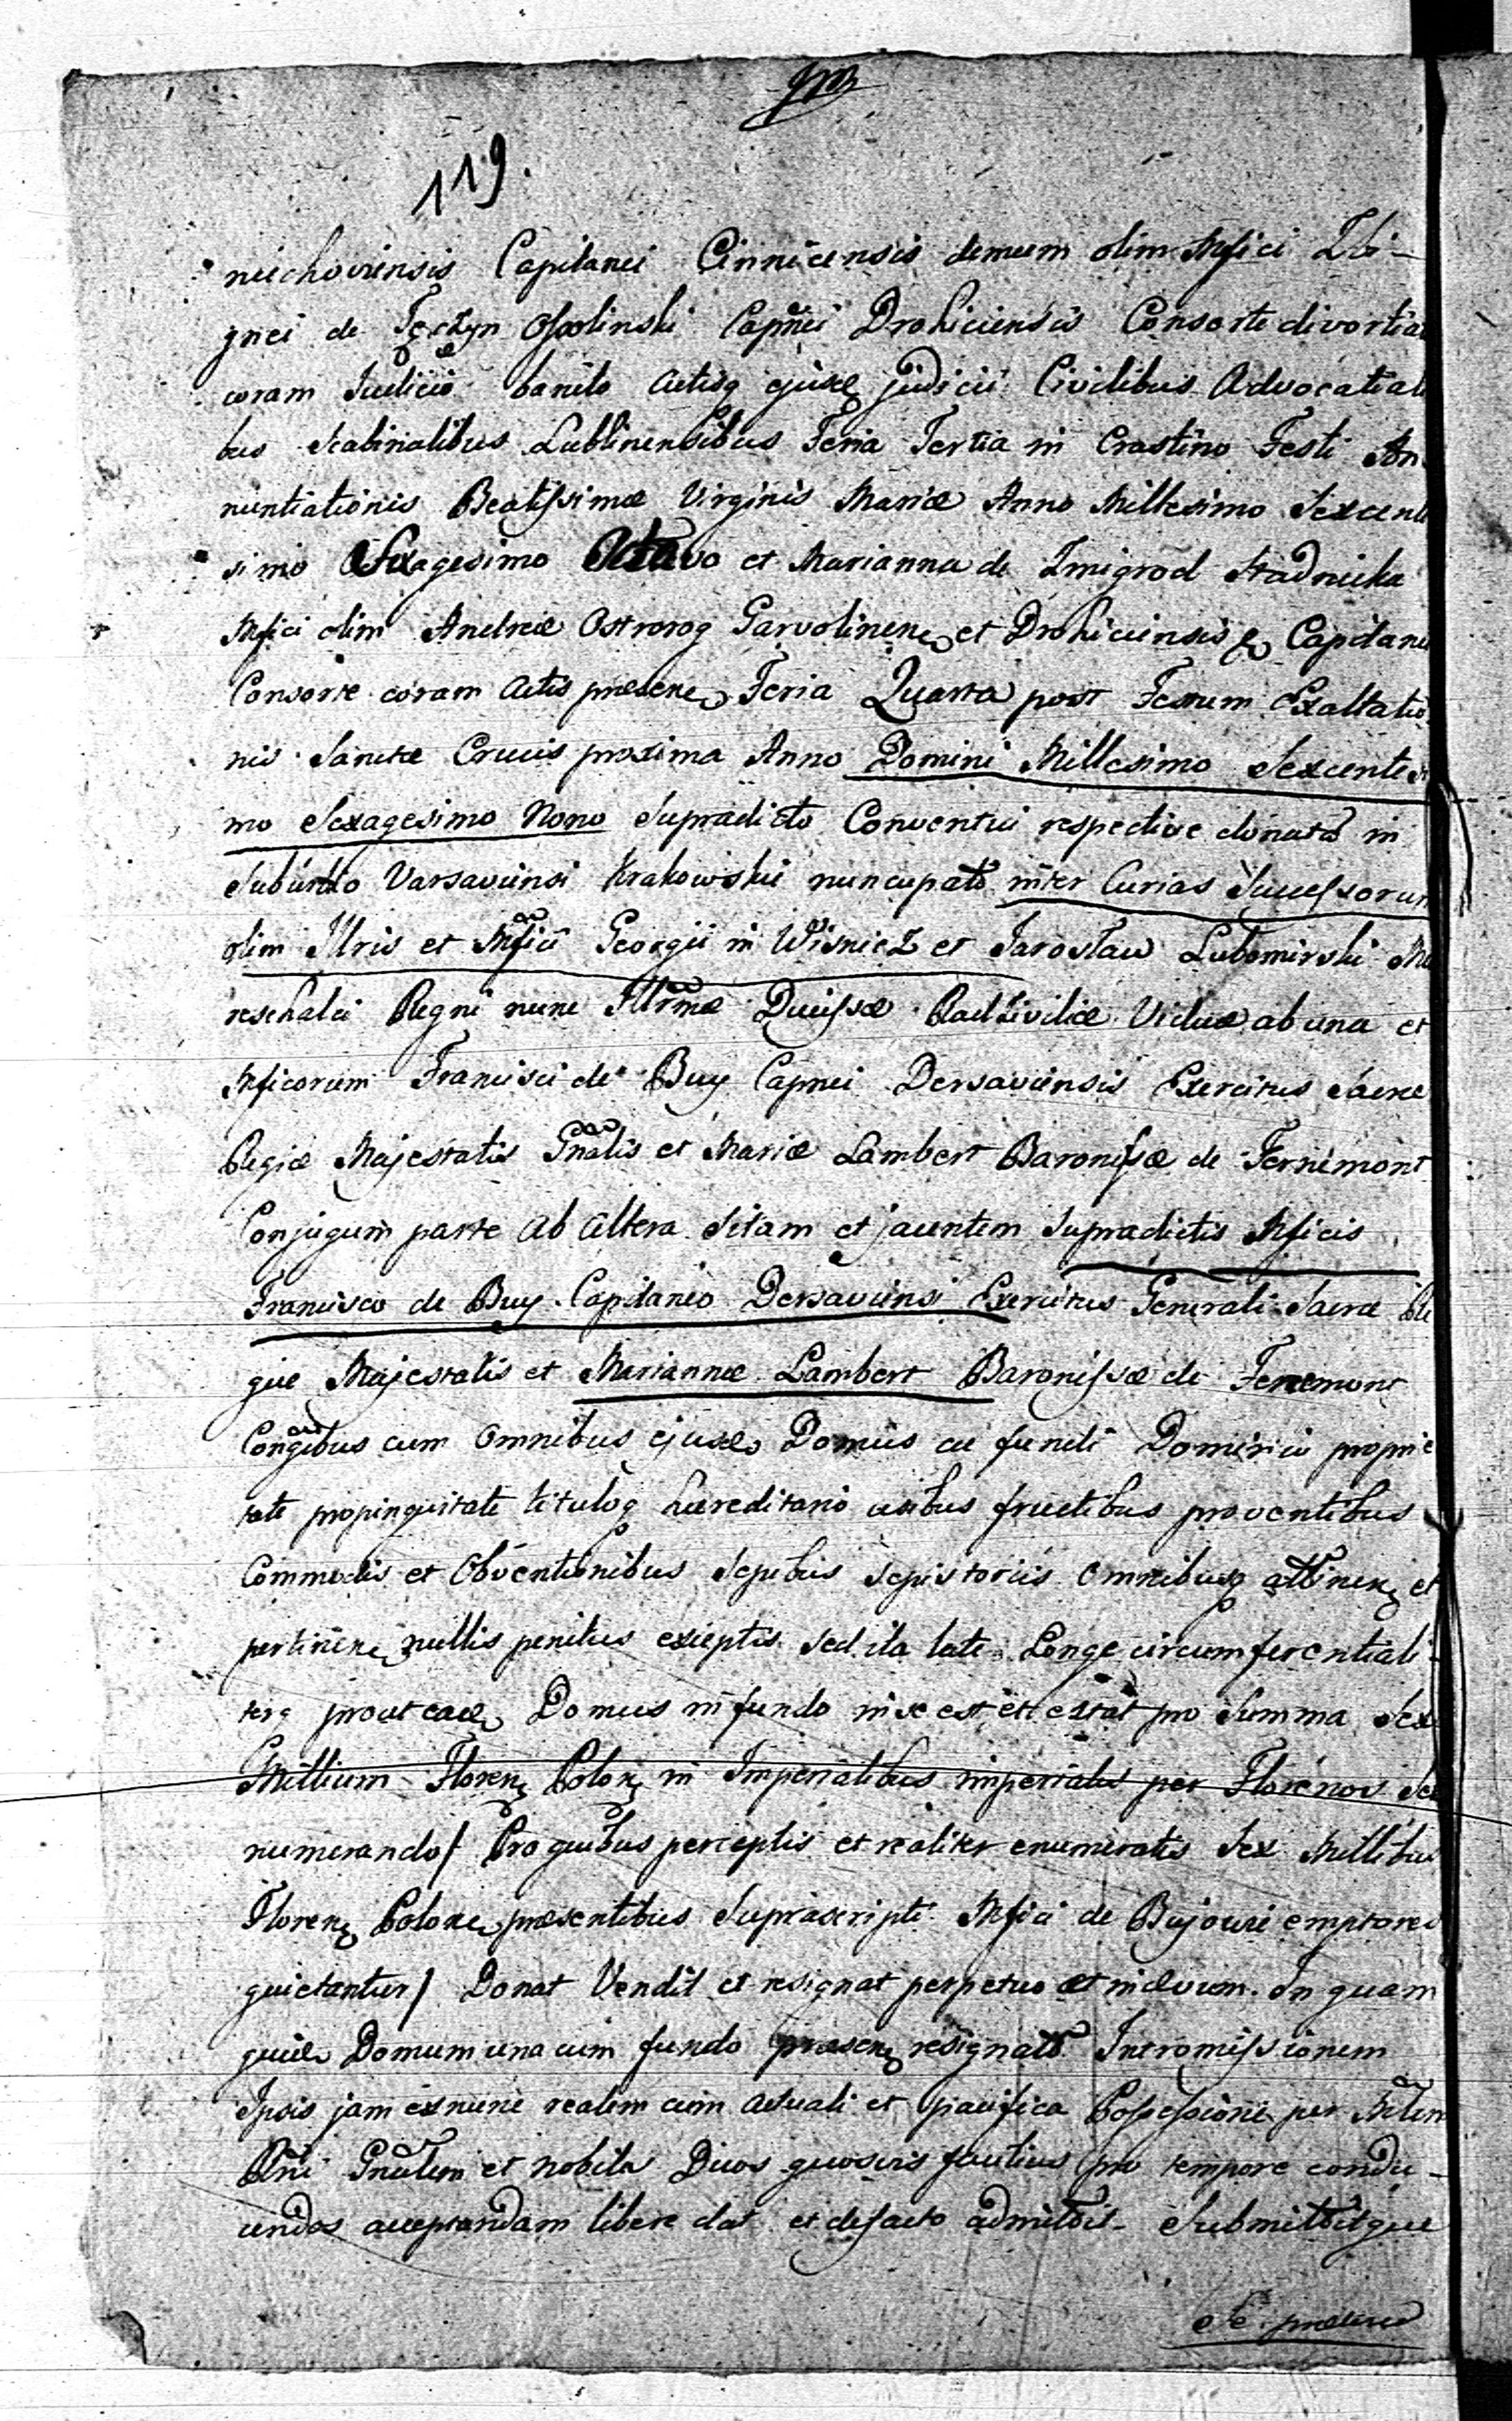 119.
niechoviensis Capitanei Cinnicensis demum olim Mfici Zbi-
gnei de Tęczyn Ossolinski Capnei Drohiciensis Consorte divortia
coram Judicio banito Actisq ejusd judicii Civilibus Advocatiali
bus Scabinalibus Lublinensibus Feria Tertia in Crastino Festi An
nuntiationis Beatissimæ Virginis Mariæ Anno Millesimo Sexcente
simo Sexagesimo Octavo et Marianna de Zmigrod Stadnicka
Mfici olim Andreæ Ostrorog Garvolinen et Drohiciensis Capitanei
Consorte coram Actis præsen Feria Quarta post Festum Exaltatio
nis Sanctæ Crucis proxima Anno Domini Millesimo Sexcentesi
mo Sexagesimo Nono Supradicto Conventui respective donata in
Suburbio Varsaviensi Krakowskie nuncupato inter Curias Successorum
olim Illris et Mfici Georgii in Wisnicz et Jaroslaw Lubomirski Ma
reschalci Regni nunc Illrmæ Ducissæ Radziviliæ Viduæ ab una et
Mficorum Francisci de Buy Capnei Dersaviensis Exercitus Sacræ
Regiæ Majestatis Gnalis et Mariæ Lambert Baronissæ de Fernemont
Conjugum parte ab altera sitam et jacentem supradictis Mficis
Francisco de Buy Capitaneo Dersaviensi Exercitus Generali Sacræ Re
giæ Majestatis et Mariannæ Lambert Baronissæ de Fernemont
Congibus cum omnibus ejusd Domus ac fundi Dominio proprie
tate propinquitate tituloq hæreditario usibus fructibus proventibus
Commodis et Obventionibus Sepibus Sepistoriis omnibusq attinen et
pertinen nullis penitus exceptis sed ita late Longe circumferentiali
terq prout ead Domus in fundo in se est et extat pro Summa Sex
Millium Floren Polon in Imperialibus imperialis per Florenos Sex
numerando/ Pro quibus perceptis et realiter enumeratis Sex Millibus
Floren Polon præsentibus Suprascripti Mfici de Bujowie emptores
quietantur/ Donat Vendit et resignat perpetuo et in ævum. In quam
quid Domum una cum fundo præsen resignato Intromissionem
Ipsis jam ex nunc realem cum actuali et pacifica Possessione per Mitem
Rni Gnalem et nobiles Duos quosvis facilius pro tempore condu-
cendos acceptandam libere dat et defacto admittit. Submittitque
se præsen